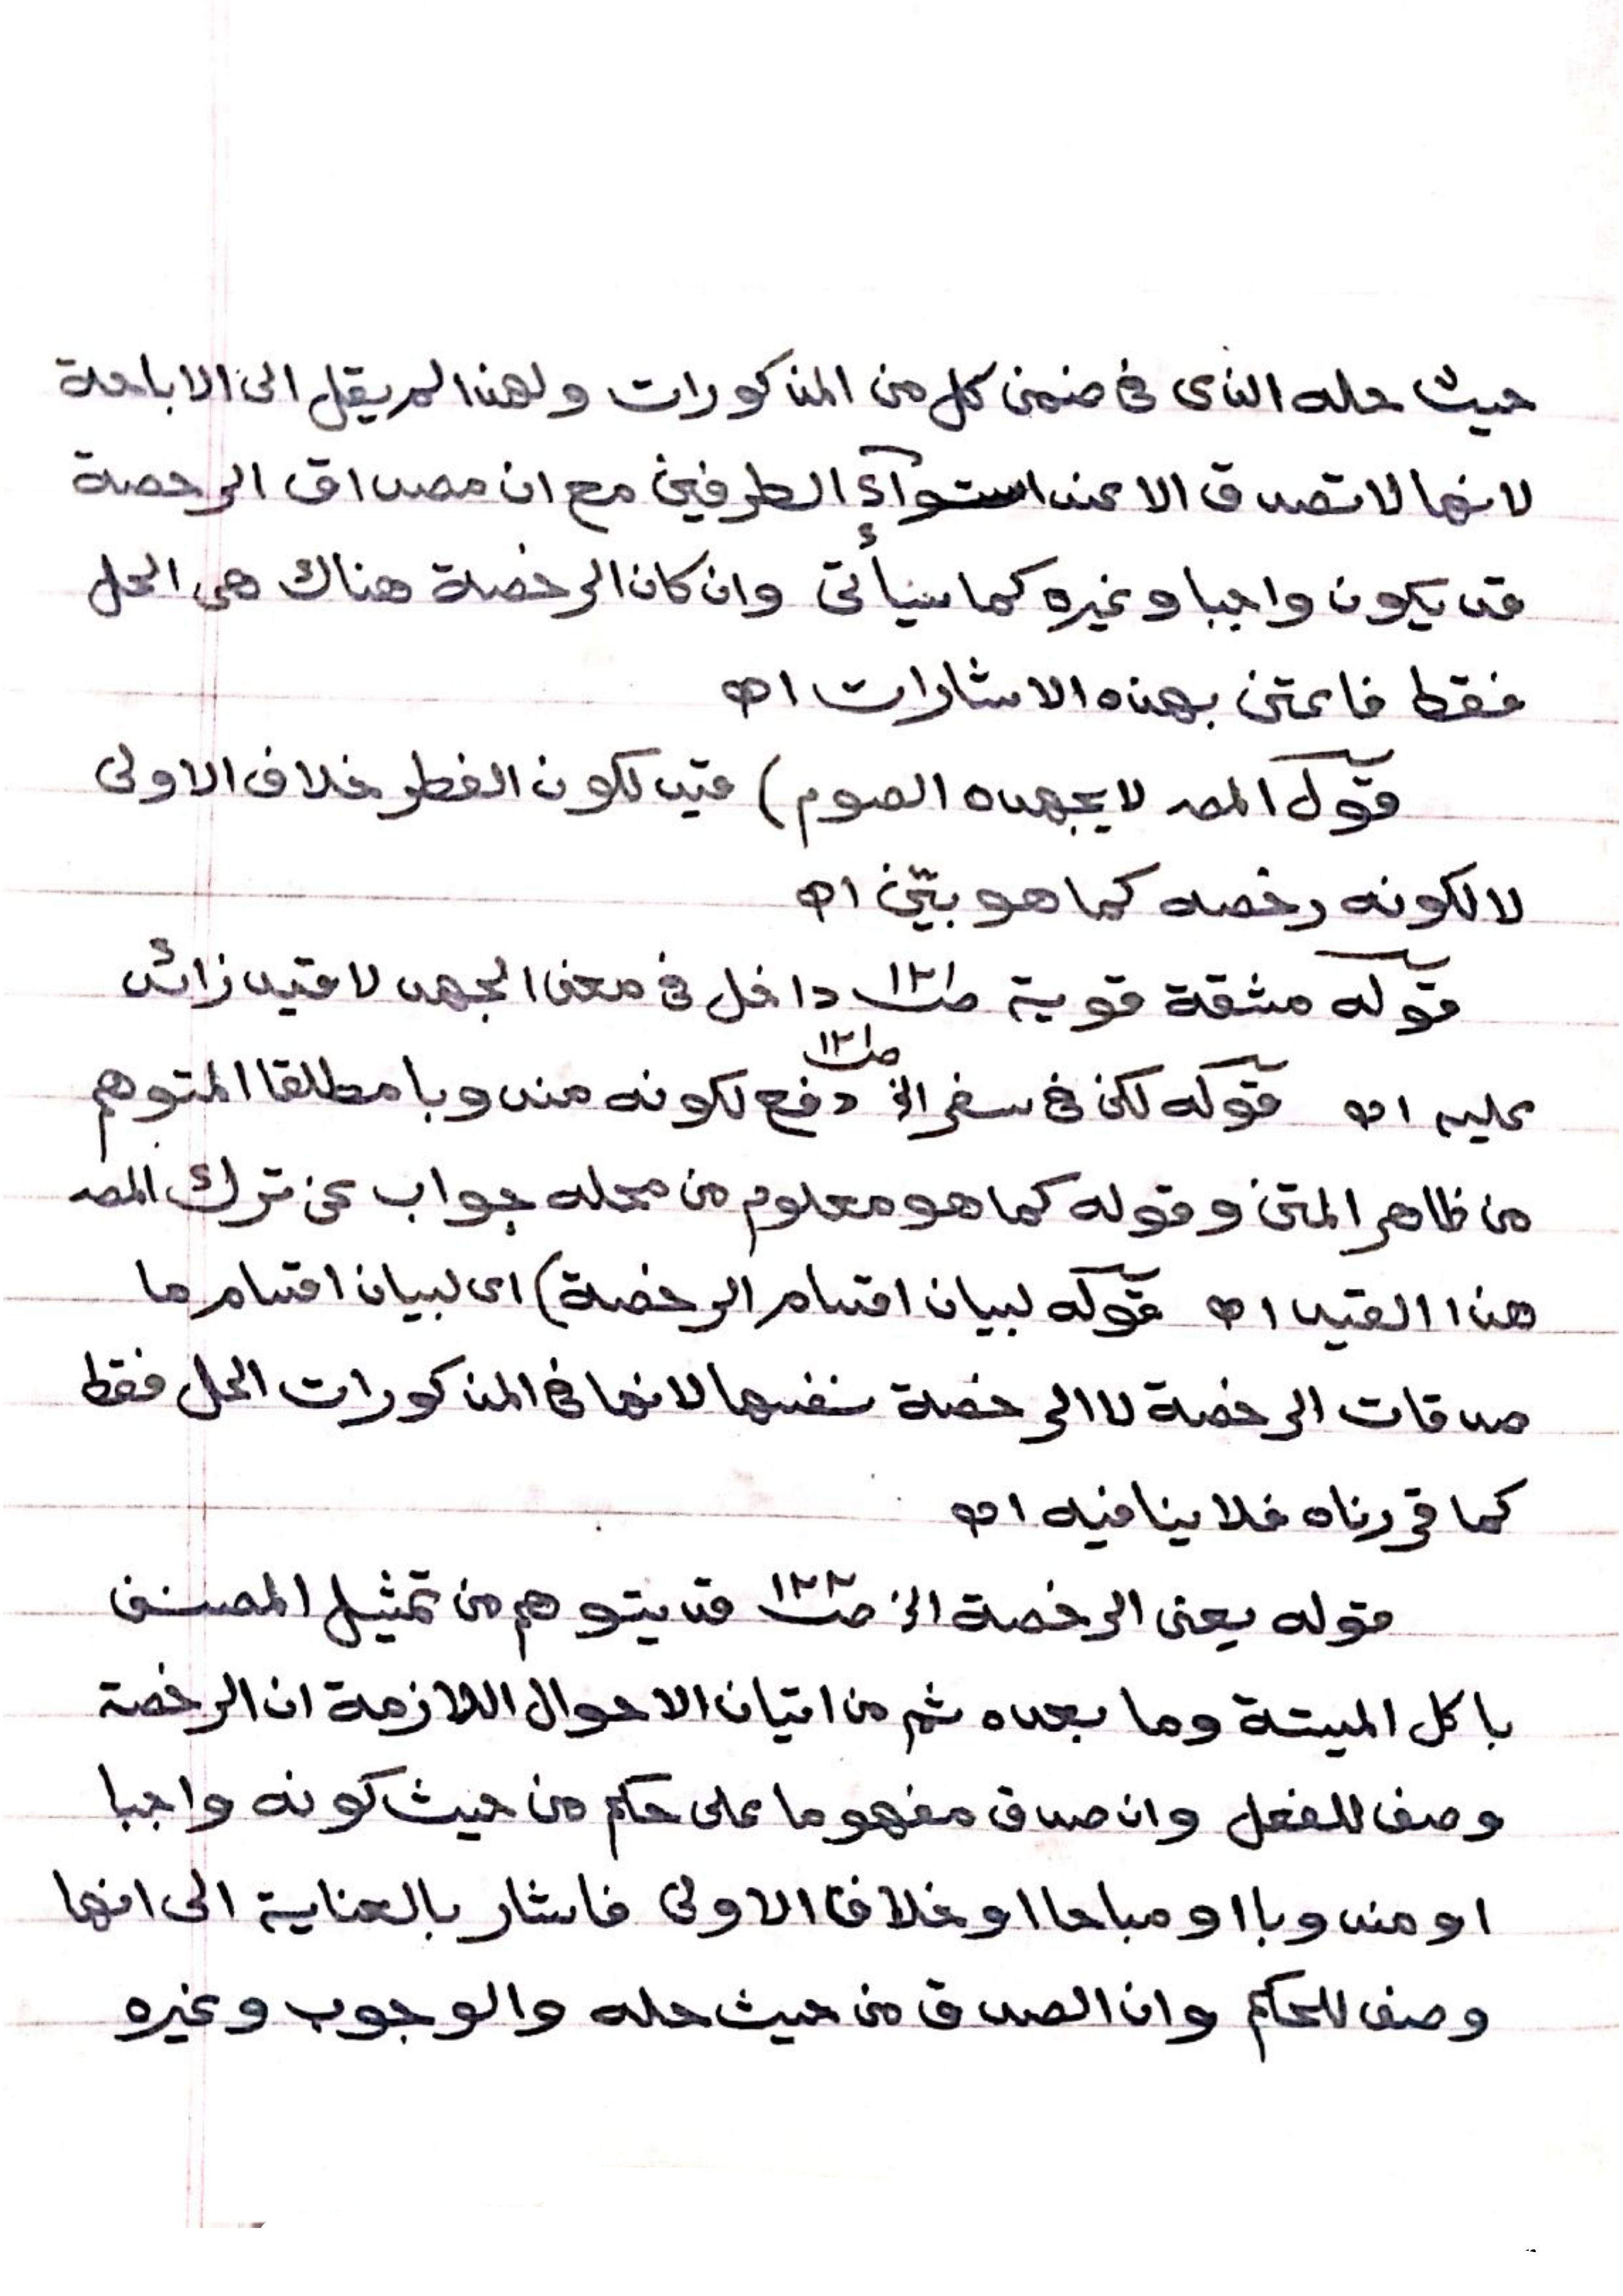 حيث حله الذى فى ضمن كل من المذكورات ولهذا لم يقل الى الاباحة
لانها لا تصدق الا عند استوآء الطرفين مع ان مصداق الرخصة
قد يكون واجبا وغيره كما سيأتى وان كان الرخصة هناك هى الحل
فقط فاعتن بهذه الاشارات اه
قوله المصـ لا يجهده الصوم) قيد لكون الفطر خلاف الاولى
لا لكونه رخصه كما هو بيّن اه
قوله مشقة قوية صـ١٢١ داخل فى معنى الجهد لا قيد زائد
عليه اه قوله لكن فى سفر الخ صـ١٢١ دفع لكونه مندوبا مطلقا المتوهم
من ظاهر المتن وقوله كما هو معلوم من محله جواب عن ترك المصـ
هذا القيد اه قوله لبيان اقسام الرخصة) اى لبيان اقسام ما
صدقات الرخصة لا الرخصة نفسها لانها فى المذكورات الحل فقط
كما قررناه فلا ينافيه اه
قوله يعنى الرخصة الخ صـ١٢٢ قد يتوهم من تمثيل المصنف
باكل الميتة وما بعده ثم من اتيان الاحوال اللازمة ان الرخصة
وصف للفعل وان صدق مفهوما على حكم من حيث كونه واجبا
او مندوبا او مباحا او خلاف الاولى فاشار بالعناية الى انها
وصف للحكم وان الصدق من حيث حله والوجوب وغيره